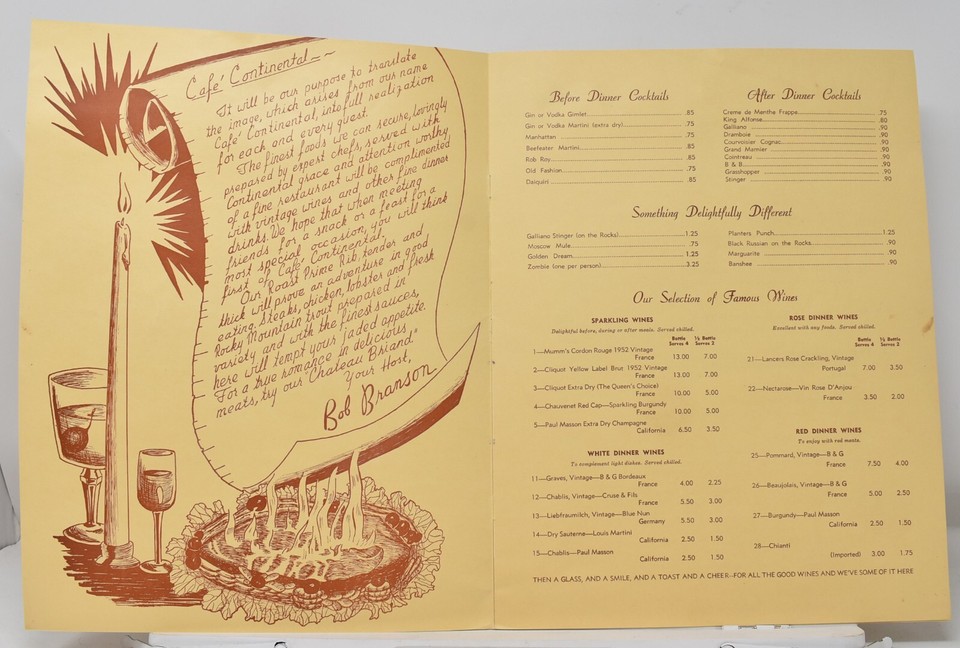 Café Continental~
It will be our purpose to translate
the image, which arises from our name
Café Continental, into full realization
for each and every guest.
The finest foods we can secure, lovingly
prepared by expert chefs, served with
Continental grace and attention worthy
of a fine restaurant will be complimented
with vintage wines and other fine dinner
drinks. We hope that when meeting
friends for a snack or a feast for a
most special occasion, you will think
first of Café Continental.
Our Roast Prime Rib, tender and
thick will prove an adventure in good
eating. Steaks, chicken, lobster and fresh
Rocky Mountain trout prepared in
variety and with the finest sauces,
here will tempt your jaded appetite.
For a true romance in delicious
meats, try our "Chateau Briand."
Your Host,
Bob Branson
Before Dinner Cocktails
Gin or Vodka Gimlet .85
Gin or Vodka Martini (extra dry) .75
Manhattan .75
Beefeater Martini .85
Rob Roy .85
Old Fashion .75
Daiquiri .85
After Dinner Cocktails
Creme de Menthe Frappe .75
King Alfonse .80
Galliano .90
Drambuie .90
Courvoisier Cognac .90
Grand Marnier .90
Cointreau .90
B & B .90
Grasshopper .90
Stinger .90
Something Delightfully Different
Galliano Stinger (on the Rocks) 1.25
Moscow Mule .75
Golden Dream 1.25
Zombie (one per person) 3.25
Planters Punch 1.25
Black Russian on the Rocks .90
Marguarite .90
Banshee .90
Our Selection of Famous Wines
SPARKLING WINES
Delightful before, during or after meals. Served chilled.
Bottle ½ Bottle
Serves 4 Serves 2
1—Mumm's Cordon Rouge 1952 Vintage
France 13.00 7.00
2—Cliquot Yellow Label Brut 1952 Vintage
France 13.00 7.00
3—Cliquot Extra Dry (The Queen's Choice)
France 10.00 5.00
4—Chauvenet Red Cap—Sparkling Burgundy
France 10.00 5.00
5—Paul Masson Extra Dry Champagne
California 6.50 3.50
WHITE DINNER WINES
To complement light dishes. Served chilled.
11—Graves, Vintage—B & G Bordeaux
France 4.00 2.25
12—Chablis, Vintage—Cruse & Fils
France 5.50 3.00
13—Liebfraumilch, Vintage—Blue Nun
Germany 5.50 3.00
14—Dry Sauterne—Louis Martini
California 2.50 1.50
15—Chablis—Paul Masson
California 2.50 1.50
ROSE DINNER WINES
Excellent with any foods. Served chilled.
Bottle ½ Bottle
Serves 4 Serves 2
21—Lancers Rose Crackling, Vintage
Portugal 7.00 3.50
22—Nectarose—Vin Rose D'Anjou
France 3.50 2.00
RED DINNER WINES
To enjoy with red meats.
25—Pommard, Vintage—B & G
France 7.50 4.00
26—Beaujolais, Vintage—B & G
France 5.00 2.50
27—Burgundy—Paul Masson
California 2.50 1.50
28—Chianti
(Imported) 3.00 1.75
THEN A GLASS, AND A SMILE, AND A TOAST AND A CHEER—FOR ALL THE GOOD WINES AND WE'VE SOME OF IT HERE